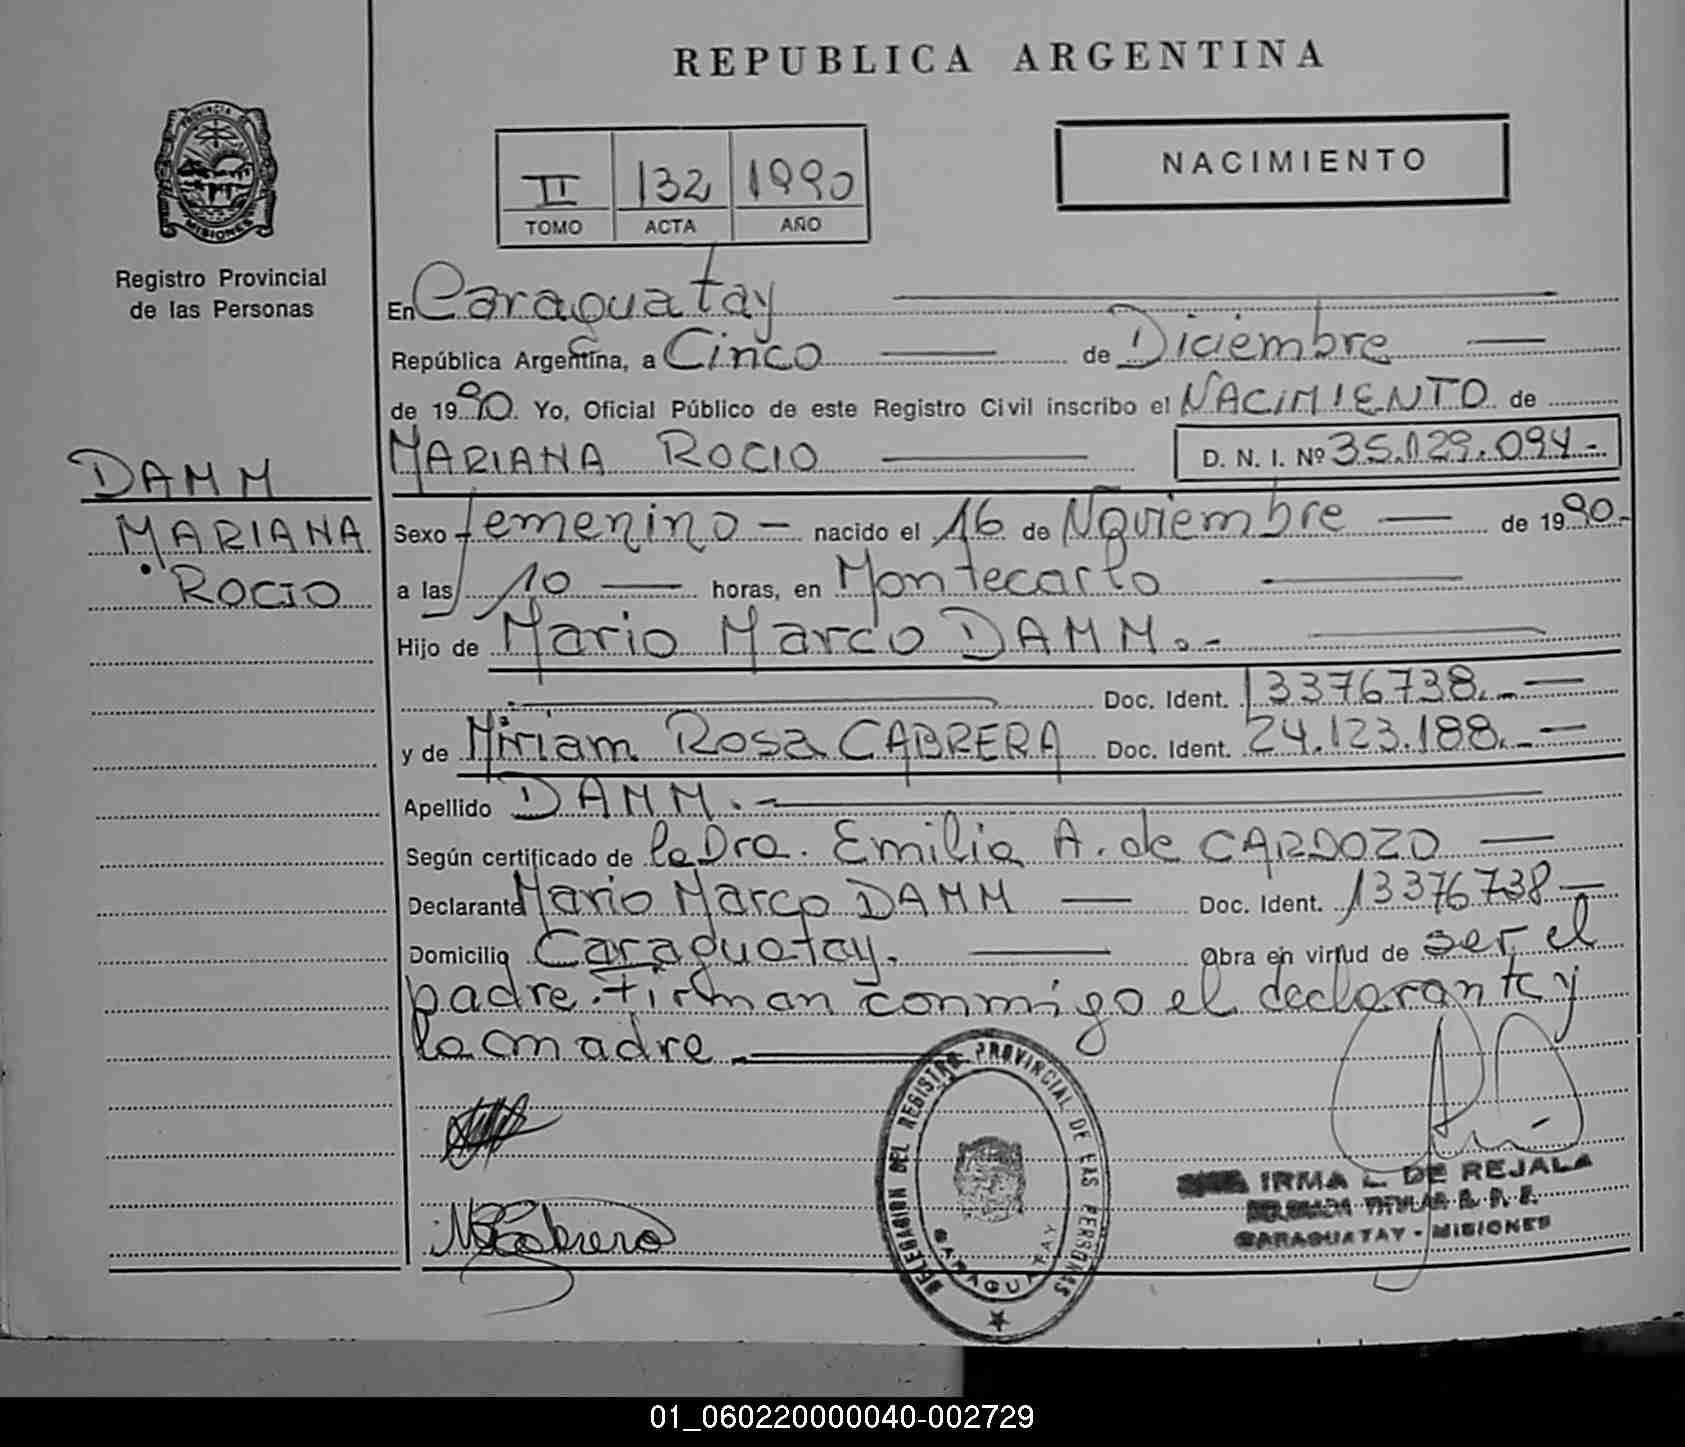 REPUBLICA ARGENTINA
PROVINCIA DE
MISIONES
Registro Provincial
de las Personas
NACIMIENTO
II 132 1990
TOMO ACTA AÑO
En Caraguatay
República Argentina, a Cinco de Diciembre
de 1990. Yo, Oficial Público de este Registro Civil inscribo el NACIMIENTO de
MARIANA ROCIO D. N. I. Nº 35.129.094.-
DAMM
MARIANA
ROCIO
Sexo femenino - nacido el 16 de Noviembre de 1990.-
a las 10 horas, en Montecarlo
Hijo de Mario Marco DAMM.-
Doc. Ident. 13376738.-
y de Miriam Rosa CABRERA Doc. Ident. 24.123.188.-
Apellido DAMM.-
Según certificado de la Dra. Emilia A. de CARDOZO
Declarante Mario Marco DAMM Doc. Ident. 13376738
Domicilio Caraguatay. Obra en virtud de ser el
padre. Firman conmigo el declarante y
la madre
DELEGACION DEL REGISTRO PROVINCIAL DE LAS PERSONAS
CARAGUATAY
MRCabrera
IRMA L. DE REJALA
TITULAR
CARAGUATAY - MISIONES
01_060220000040-002729